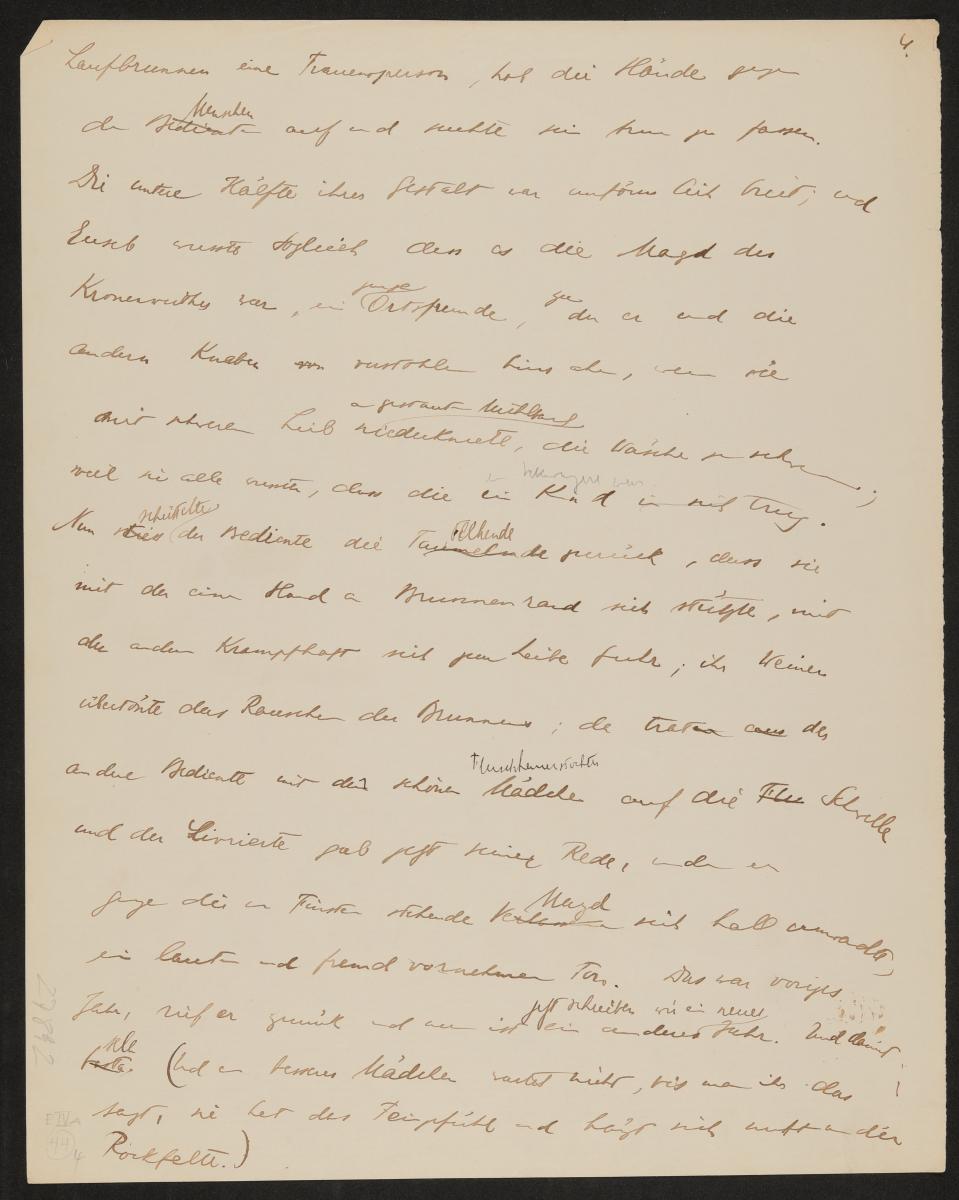 4.
Laufbrunnen eine Frauensperson, hob die Hände gegen
Menschen
den Bedienten auf und suchte ihn zu fassen.
Die untere Hälfte ihrer Gestalt war unförmlich breit; und
Euseb wusste sogleich dass es die Magd des
Kronenwirthes war, ein
junge
Ortsfremde, zu der er und die
andern Knaben von verstohlen hinsahen, wenn sie
angestauten Mühlbach
mit schwerem Leib niederkniete, die Wäsche zu
weil sie alle wussten, dass die ein Kind in sich trug.
schüttelte
Nun stiess der Bediente die
Taumelnde zurück, dass sie
mit der einen Hand am Brunnenrand sich stützte, mit
der andern krampfhaft sich zum Leibe fuhr; ihr Weinen
übertönte das Rauschen des Brunnens; da traten aus der
andere Bediente mit der schönen Mädchen auf die Flu Schwelle
und der Livrierte gab jetzt seiner Rede, indem er
Magd
gegen die am Fenster stehende sich halb umwandte,
ein lauten und fremd vornehmen Ton. Das war voriges
Jahr, rief er zurück und nun ist ein anderes Jahr. Und damit
jetzt schreiben wir ein neues
(Und ein besseres Mädchen wartet nicht, bis man ihr das
sagt, sie hat das Feingefühl und hängt sich nicht an die
Rockfalte.)
29862
E IV A
44
4